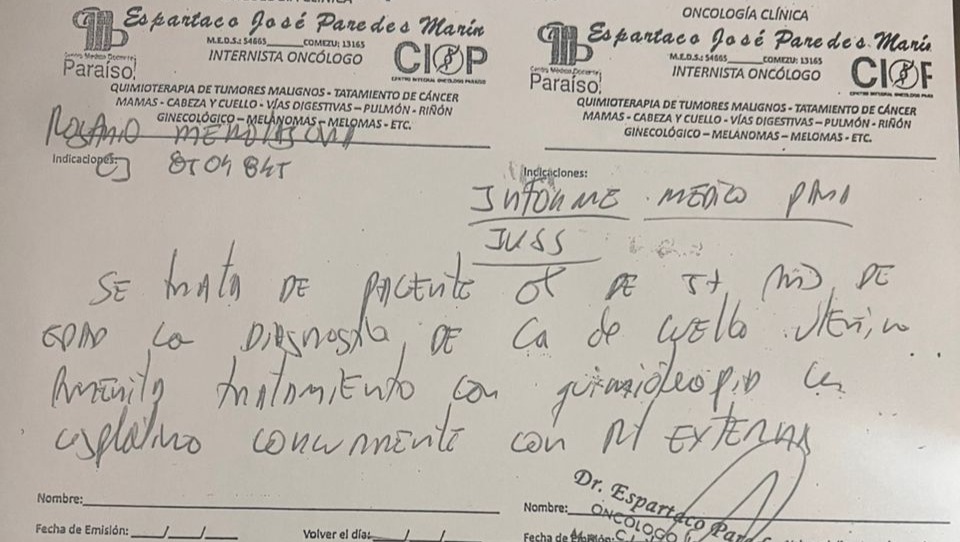 Espartaco José Paredes Marín
M.E.D.S.: 54665 COMEZU: 13165
INTERNISTA ONCÓLOGO
Centro Médico Docente
Paraíso
CIOP
CENTRO INTEGRAL ONCOLÓGICO PARAÍSO
QUIMIOTERAPIA DE TUMORES MALIGNOS - TATAMIENTO DE CÁNCER
MAMAS - CABEZA Y CUELLO - VÍAS DIGESTIVAS – PULMÓN - RIÑÓN
GINECOLÓGICO – MELÁNOMAS – MELOMAS - ETC.
ONCOLOGÍA CLÍNICA
Espartaco José Paredes Marí
M.E.D.S.: 54665 COMEZU: 13165
INTERNISTA ONCÓLOGO
Centro Médico Docente
Paraíso
QUIMIOTERAPIA DE TUMORES MALIGNOS - TATAMIENTO DE CÁNCER
MAMAS - CABEZA Y CUELLO - VÍAS DIGESTIVAS – PULMÓN - RIÑÓN
GINECOLÓGICO – MELÁNOMAS – MELOMAS - ETC.
Indicaciones:
Indicaciones:
INFORME MEDICO PARA
IVSS
SE trata DE PACIENTE DE DE
EDAD DIAGNOSTICO DE Ca de cuello uterino
Amerita tratamiento con quimioterapia
cisplatino concurrente con RT EXTERNA
Nombre:
Fecha de Emisión: __/__/__ Volver el día: __/__/__
Nombre:
Dr. Espartaco Par
ONCÓLOGO
Fecha de